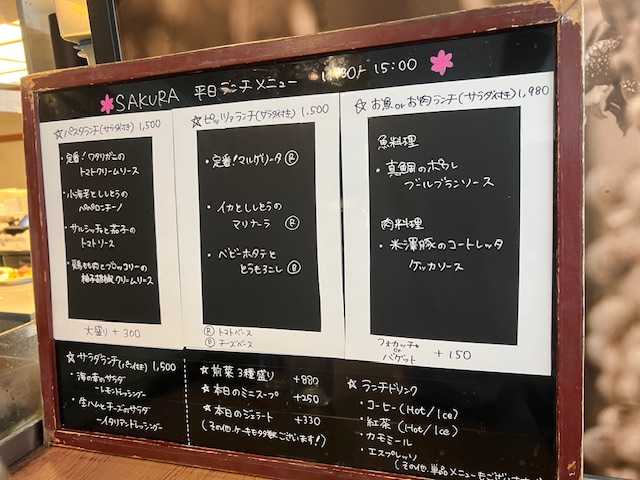 SAKURA 平日ランチメニュー 15:00
☆パスタランチ(サラダ付き) 1,500
・定番!ワタリガニの
トマトクリームソース
・小海老とししとうの
ペペロンチーノ
・サルシッチャと茄子の
トマトソース
・鶏もも肉とブロッコリーの
柚子胡椒クリームソース
大盛り +300
☆ピッツァランチ(サラダ付き) 1,500
・定番!マルゲリータ Ⓡ
・イカとししとうの
マリナーラ Ⓡ
・ベビーホタテと
とうもろこし
トマトベース
チーズベース
☆お魚orお肉ランチ(サラダ付き) 1,980
魚料理
・真鯛のポワレ
ブールブランソース
肉料理
・米澤豚のコートレッタ
ケッカソース
フォカッチャ
or
バゲット +150
☆サラダランチ(パン付き) 1,500
・海の幸のサラダ
ーレモンドレッシングー
・生ハムとチーズのサラダ
ーイタリアンドレッシングー
☆前菜3種盛り +880
☆本日のミニスープ +250
☆本日のジェラート +330
(その他、ケーキも多数ございます!)
☆ランチドリンク
・コーヒー(Hot/Ice)
・紅茶(Hot/Ice)
・カモミール
・エスプレッソ
(その他、単品メニューもございます